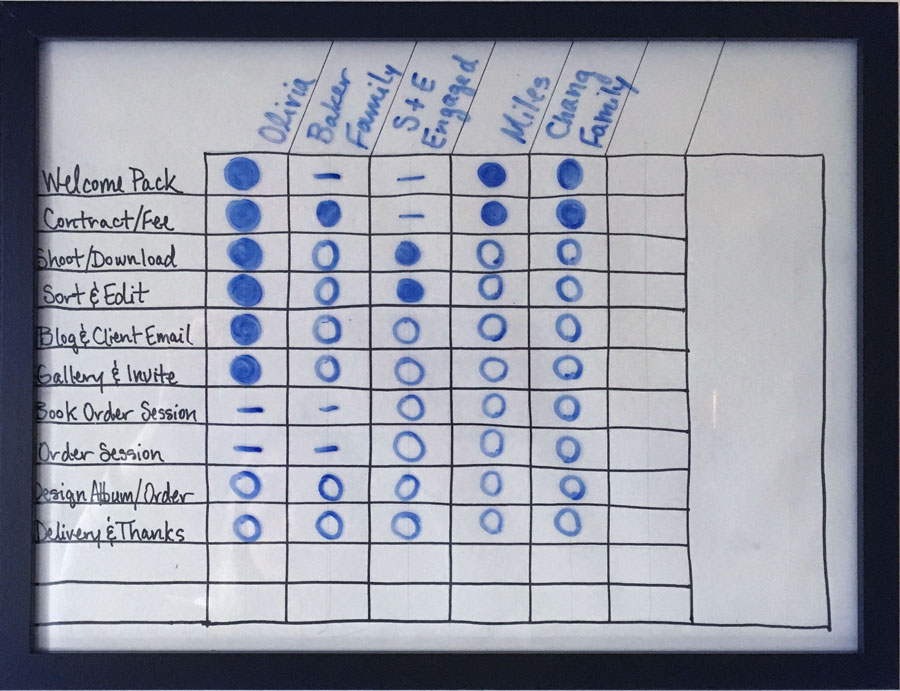 Olivia
Baker
Family
S+E
Engaged
Miles
Chang
Family
Welcome Pack
Contract/Fee
Shoot/Download
Sort & Edit
Blog & Client Email
Gallery & Invite
Book Order Session
Order Session
Design Album/Order
Delivery & Thanks